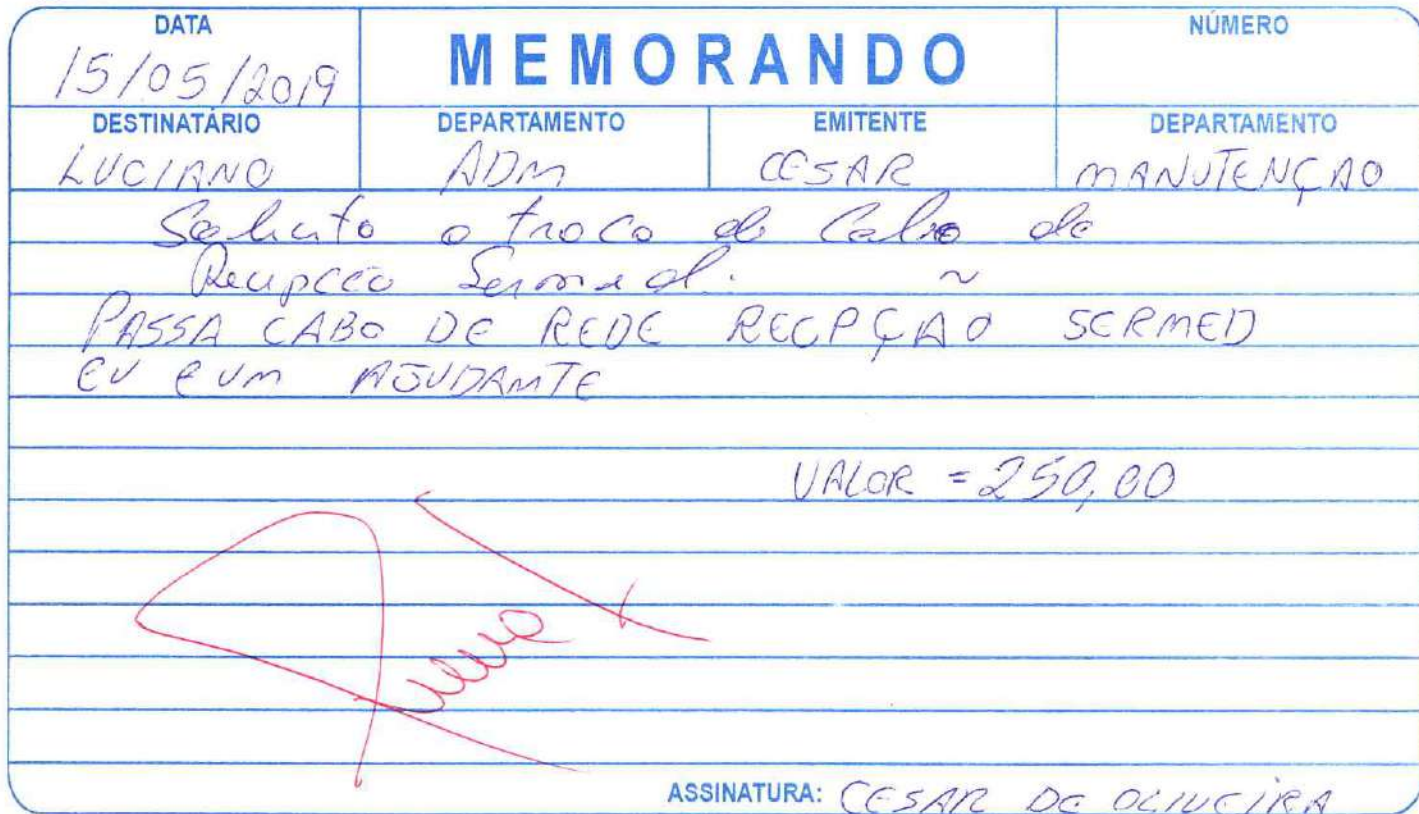 DATA
15/05/2019
MEMORANDO
NÚMERO
DESTINATÁRIO
LUCIANO
DEPARTAMENTO
ADM
EMITENTE
CESAR
DEPARTAMENTO
MANUTENÇAO
Solicito a troca do Cabo da
Recepção Sermed.
PASSA CABO DE REDE RECPÇAO SERMED
EU E UM AJUDAMTE
VALOR = 250,00
ASSINATURA: CESAR DE OLIVEIRA